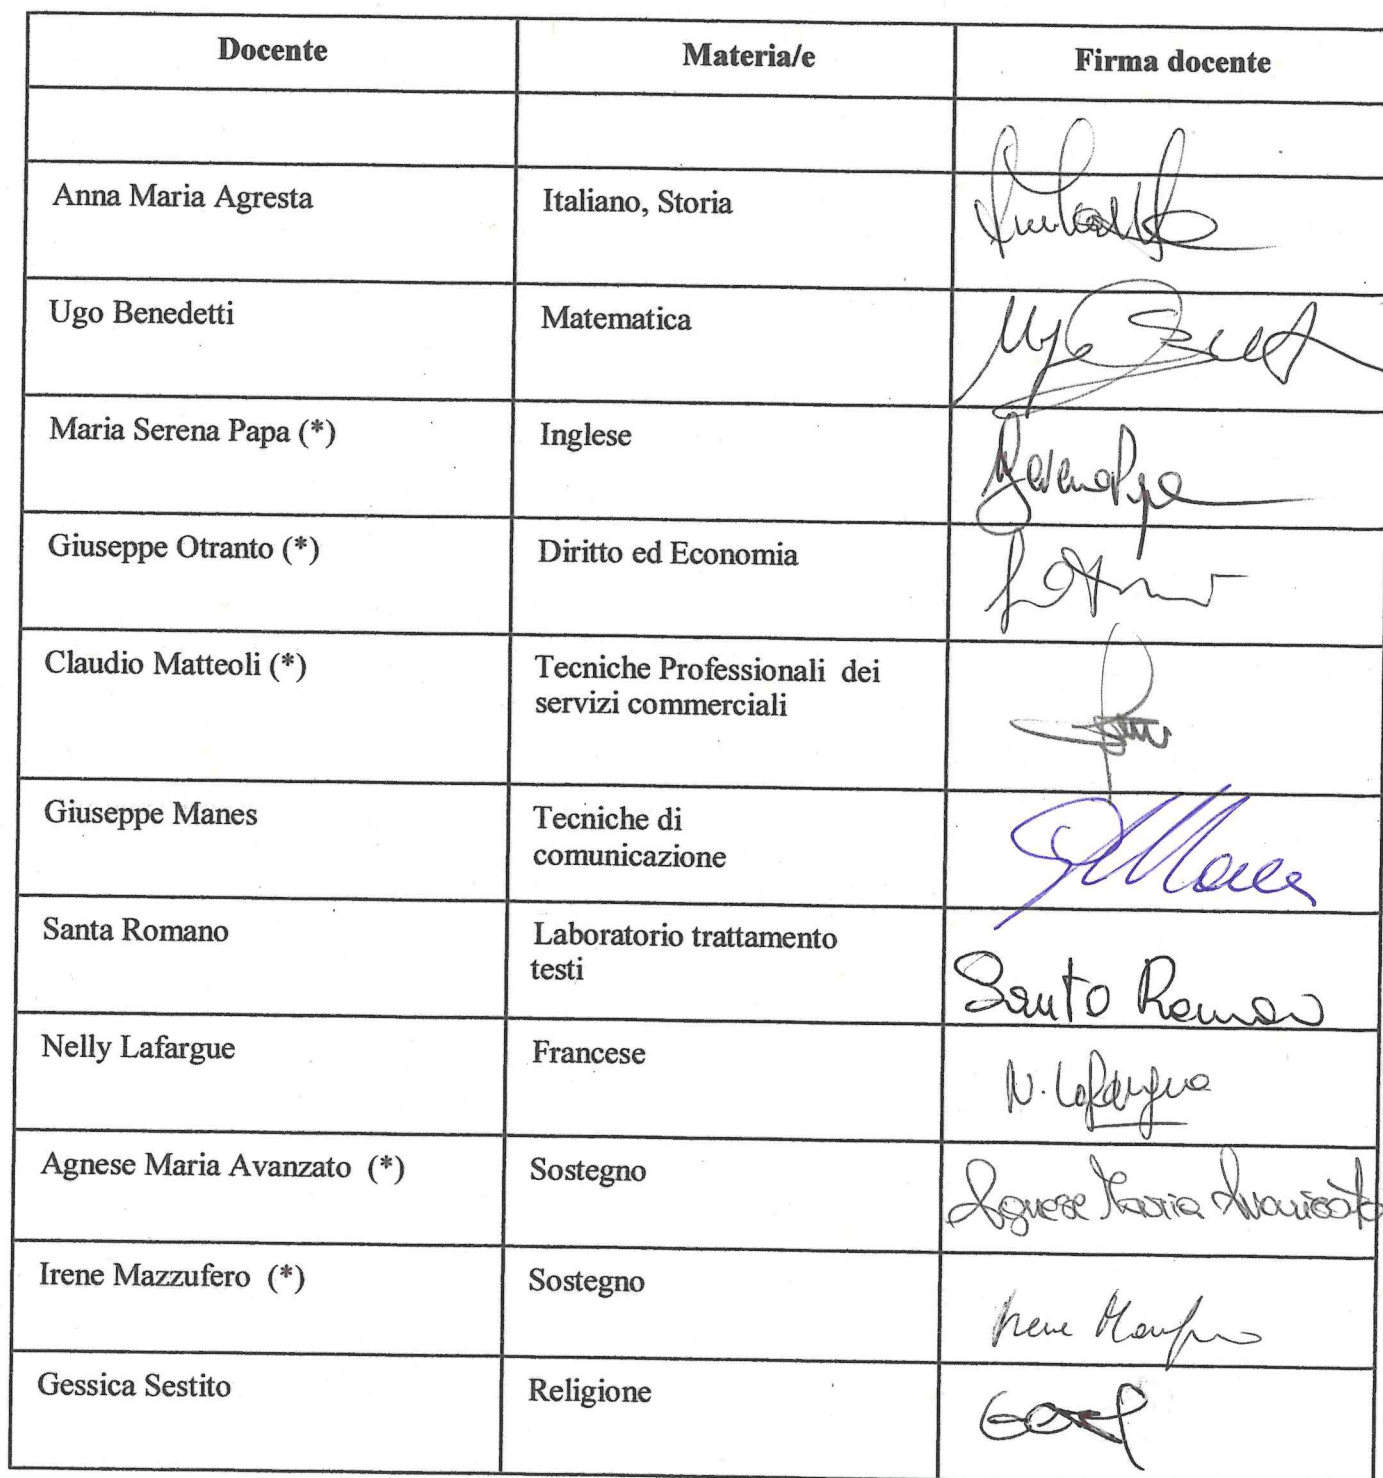 Docente Materia/e Firma docente
Anna Maria Agresta Italiano, Storia
Ugo Benedetti Matematica
Maria Serena Papa (*) Inglese
Giuseppe Otranto (*) Diritto ed Economia
Claudio Matteoli (*) Tecniche Professionali dei
servizi commerciali
Giuseppe Manes Tecniche di
comunicazione
Santa Romano Laboratorio trattamento
testi
Santa Romano
Nelly Lafargue Francese N. Lafargue
Agnese Maria Avanzato (*) Sostegno Agnese Maria Avanzato
Irene Mazzufero (*) Sostegno
Irene
Gessica Sestito Religione